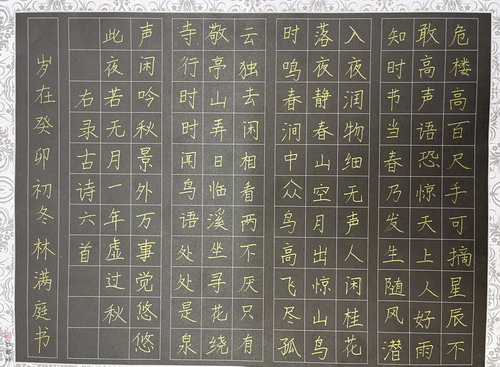 危楼高百尺手可摘星辰不
敢高声语恐惊天上人好雨
知时节当春乃发生随风潜
入夜润物细无声人闲桂花
落夜静春山空月出惊山鸟
时鸣春涧中众鸟高飞尽孤
云独去闲相看两不厌只有
敬亭山弄日临溪坐寻花绕
寺行时时闻鸟语处处是泉
声闲吟秋景外万事觉悠悠
此夜若无月一年虚过秋
右录古诗六首
岁在癸卯初冬林满庭书